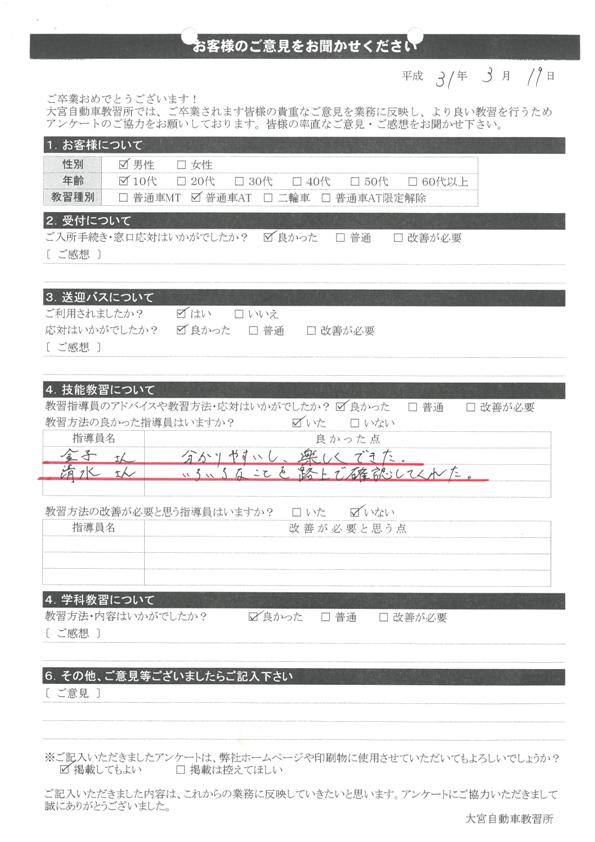 お客様のご意見をお聞かせください
平成 31年 3月 19日
ご卒業おめでとうございます！
大宮自動車教習所では、ご卒業されます皆様の貴重なご意見を業務に反映し、より良い教習を行うため
アンケートのご協力をお願いしております。皆様の率直なご意見・ご感想をお聞かせ下さい。
1. お客様について
性別 ☑男性 □女性
年齢 ☑10代 □20代 □30代 □40代 □50代 □60代以上
教習種別 □普通車MT ☑普通車AT □二輪車 □普通車AT限定解除
2. 受付について
ご入所手続き・窓口応対はいかがでしたか？ ☑良かった □普通 □改善が必要
〔 ご感想 〕
3. 送迎バスについて
ご利用されましたか？ ☑はい □いいえ
応対はいかがでしたか？ ☑良かった □普通 □改善が必要
〔 ご感想 〕
4. 技能教習について
教習指導員のアドバイスや教習方法・応対はいかがでしたか？ ☑良かった □普通 □改善が必要
教習方法の良かった指導員はいますか？ ☑いた □いない
指導員名 良かった点
金子 さん 分かりやすいし、楽しくできた。
清水 さん いろいろなことを路上で確認してくれた。
教習方法の改善が必要と思う指導員はいますか？ □いた ☑いない
指導員名 改善が必要と思う点
4. 学科教習について
教習方法・内容はいかがでしたか？ ☑良かった □普通 □改善が必要
〔 ご感想 〕
6. その他、ご意見等ございましたらご記入下さい
〔 ご意見 〕
※ご記入いただきましたアンケートは、弊社ホームページや印刷物に使用させていただいてもよろしいでしょうか？
☑掲載してもよい □掲載は控えてほしい
ご記入いただきました内容は、これからの業務に反映していきたいと思います。アンケートにご協力いただきまして
誠にありがとうございました。
大宮自動車教習所